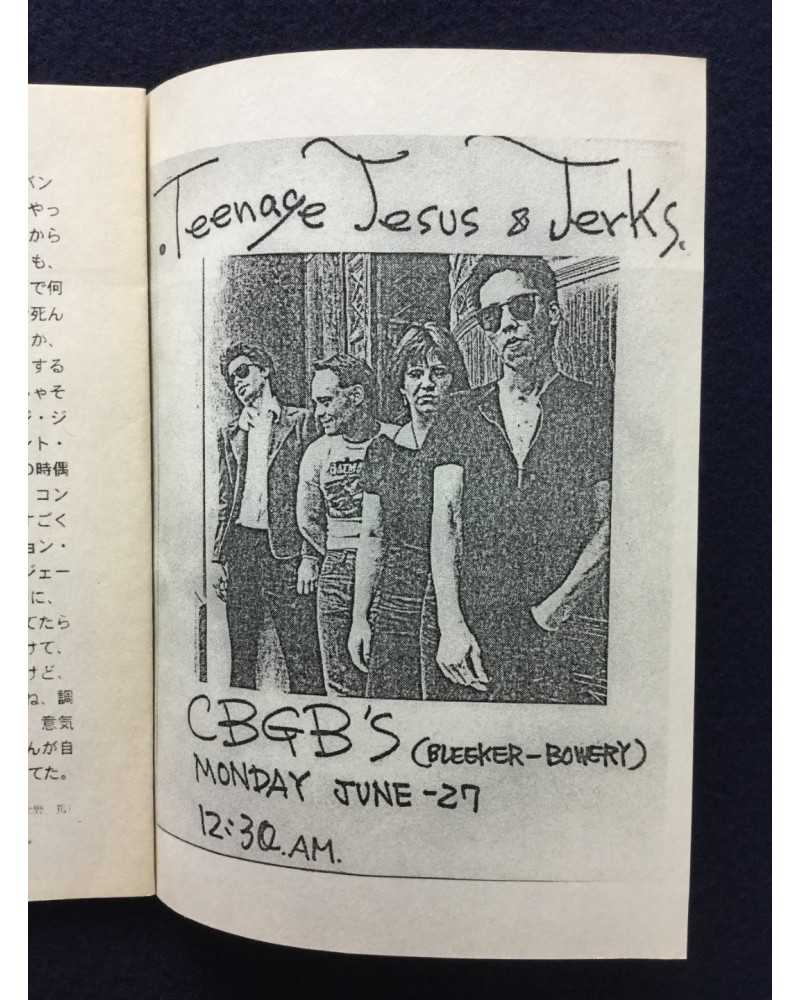 バン
やっ
から
も、
で何
死ん
か、
する
ゃそ
ジ・ジ
ント・
の時偶
コン
すごく
ョン・
ジェー
に、
てたら
けて、
けど、
ね、調
意気
んが自
てた。
.Teenage Jesus & Jerks.
BATMAN
CBGB'S (BLEEKER-BOWERY)
MONDAY JUNE-27
12:30.AM.